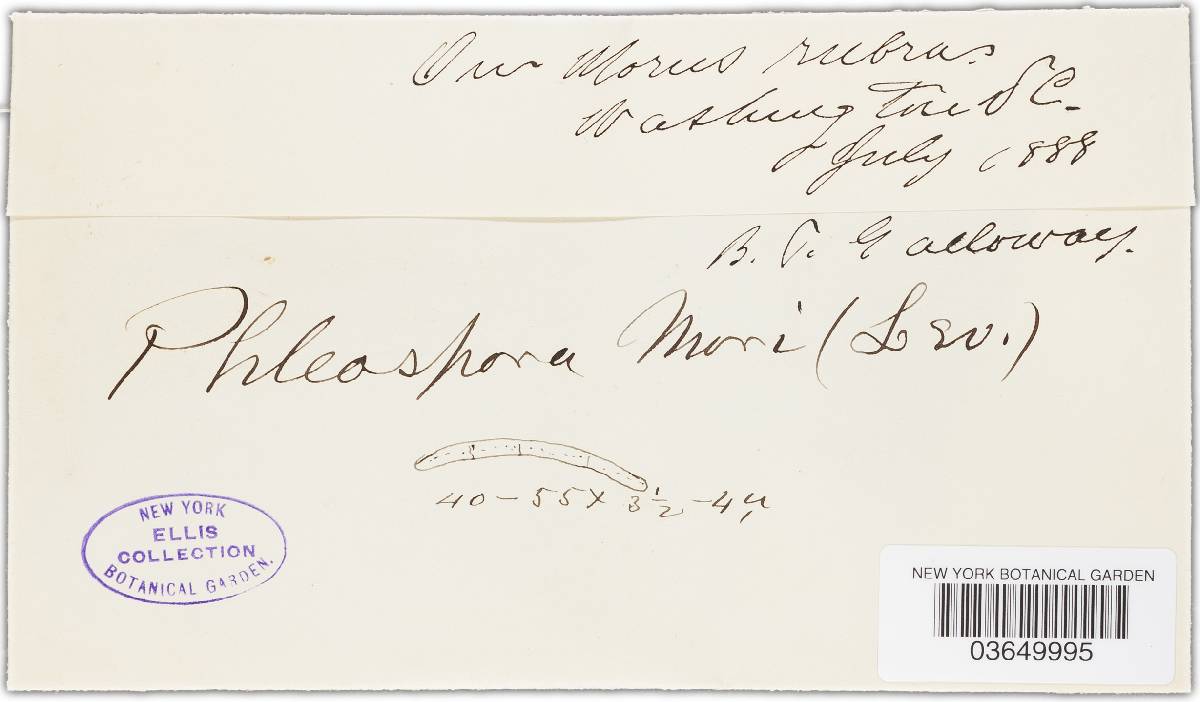 On Morus rubra.
Washington DC.
July 1888
B. T. Galloway.
Phleospora Mori (Lev.)
40-55 x 3½-4µ
NEW YORK
ELLIS
COLLECTION
BOTANICAL GARDEN.
NEW YORK BOTANICAL GARDEN
03649995